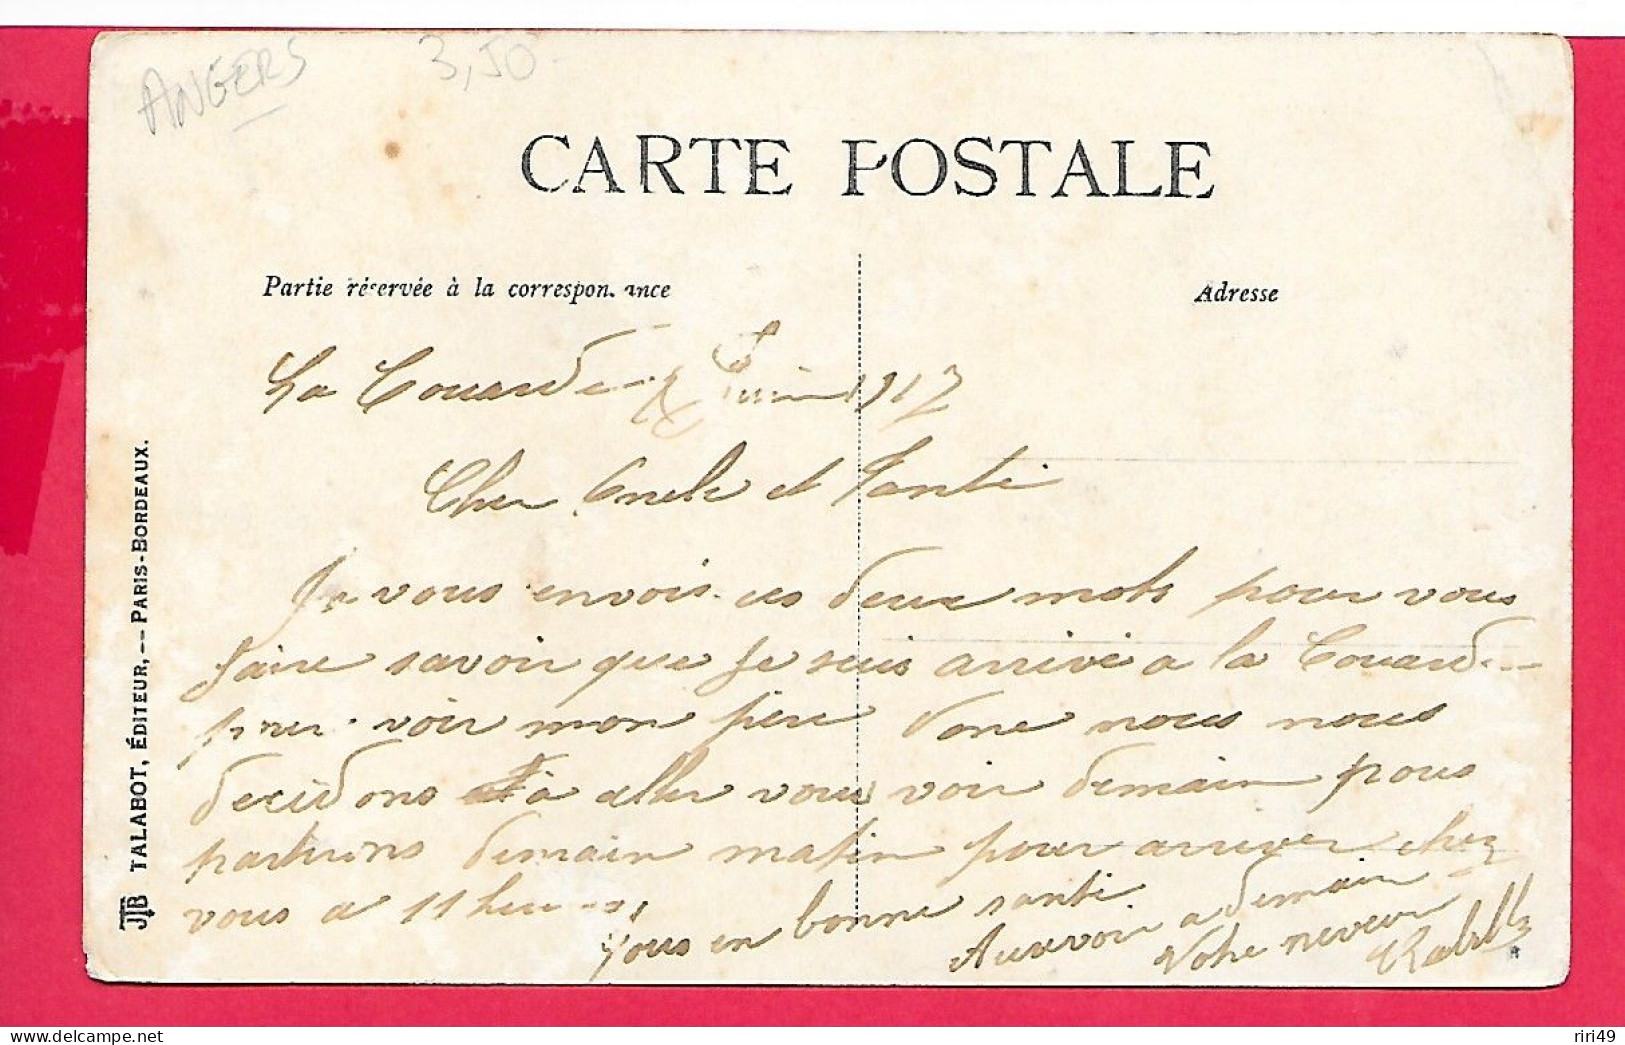 ANGERS 3,50
CARTE POSTALE
Partie réservée à la correspondance
Adresse
La Couarde Juin 1917
Cher Oncle et Tante
Je vous envois ces deux mots pour vous
faire savoir que je suis arrivé a la Couarde
pour voir mon père donc nous nous
decidons à aller vous voir demain nous
partirons demain matin pour arriver chez
vous a 11 heures
Tous en bonne santé
Aurevoir a demain
Votre neveu
TALABOT, ÉDITEUR, -- PARIS-BORDEAUX.
JTB
riri49